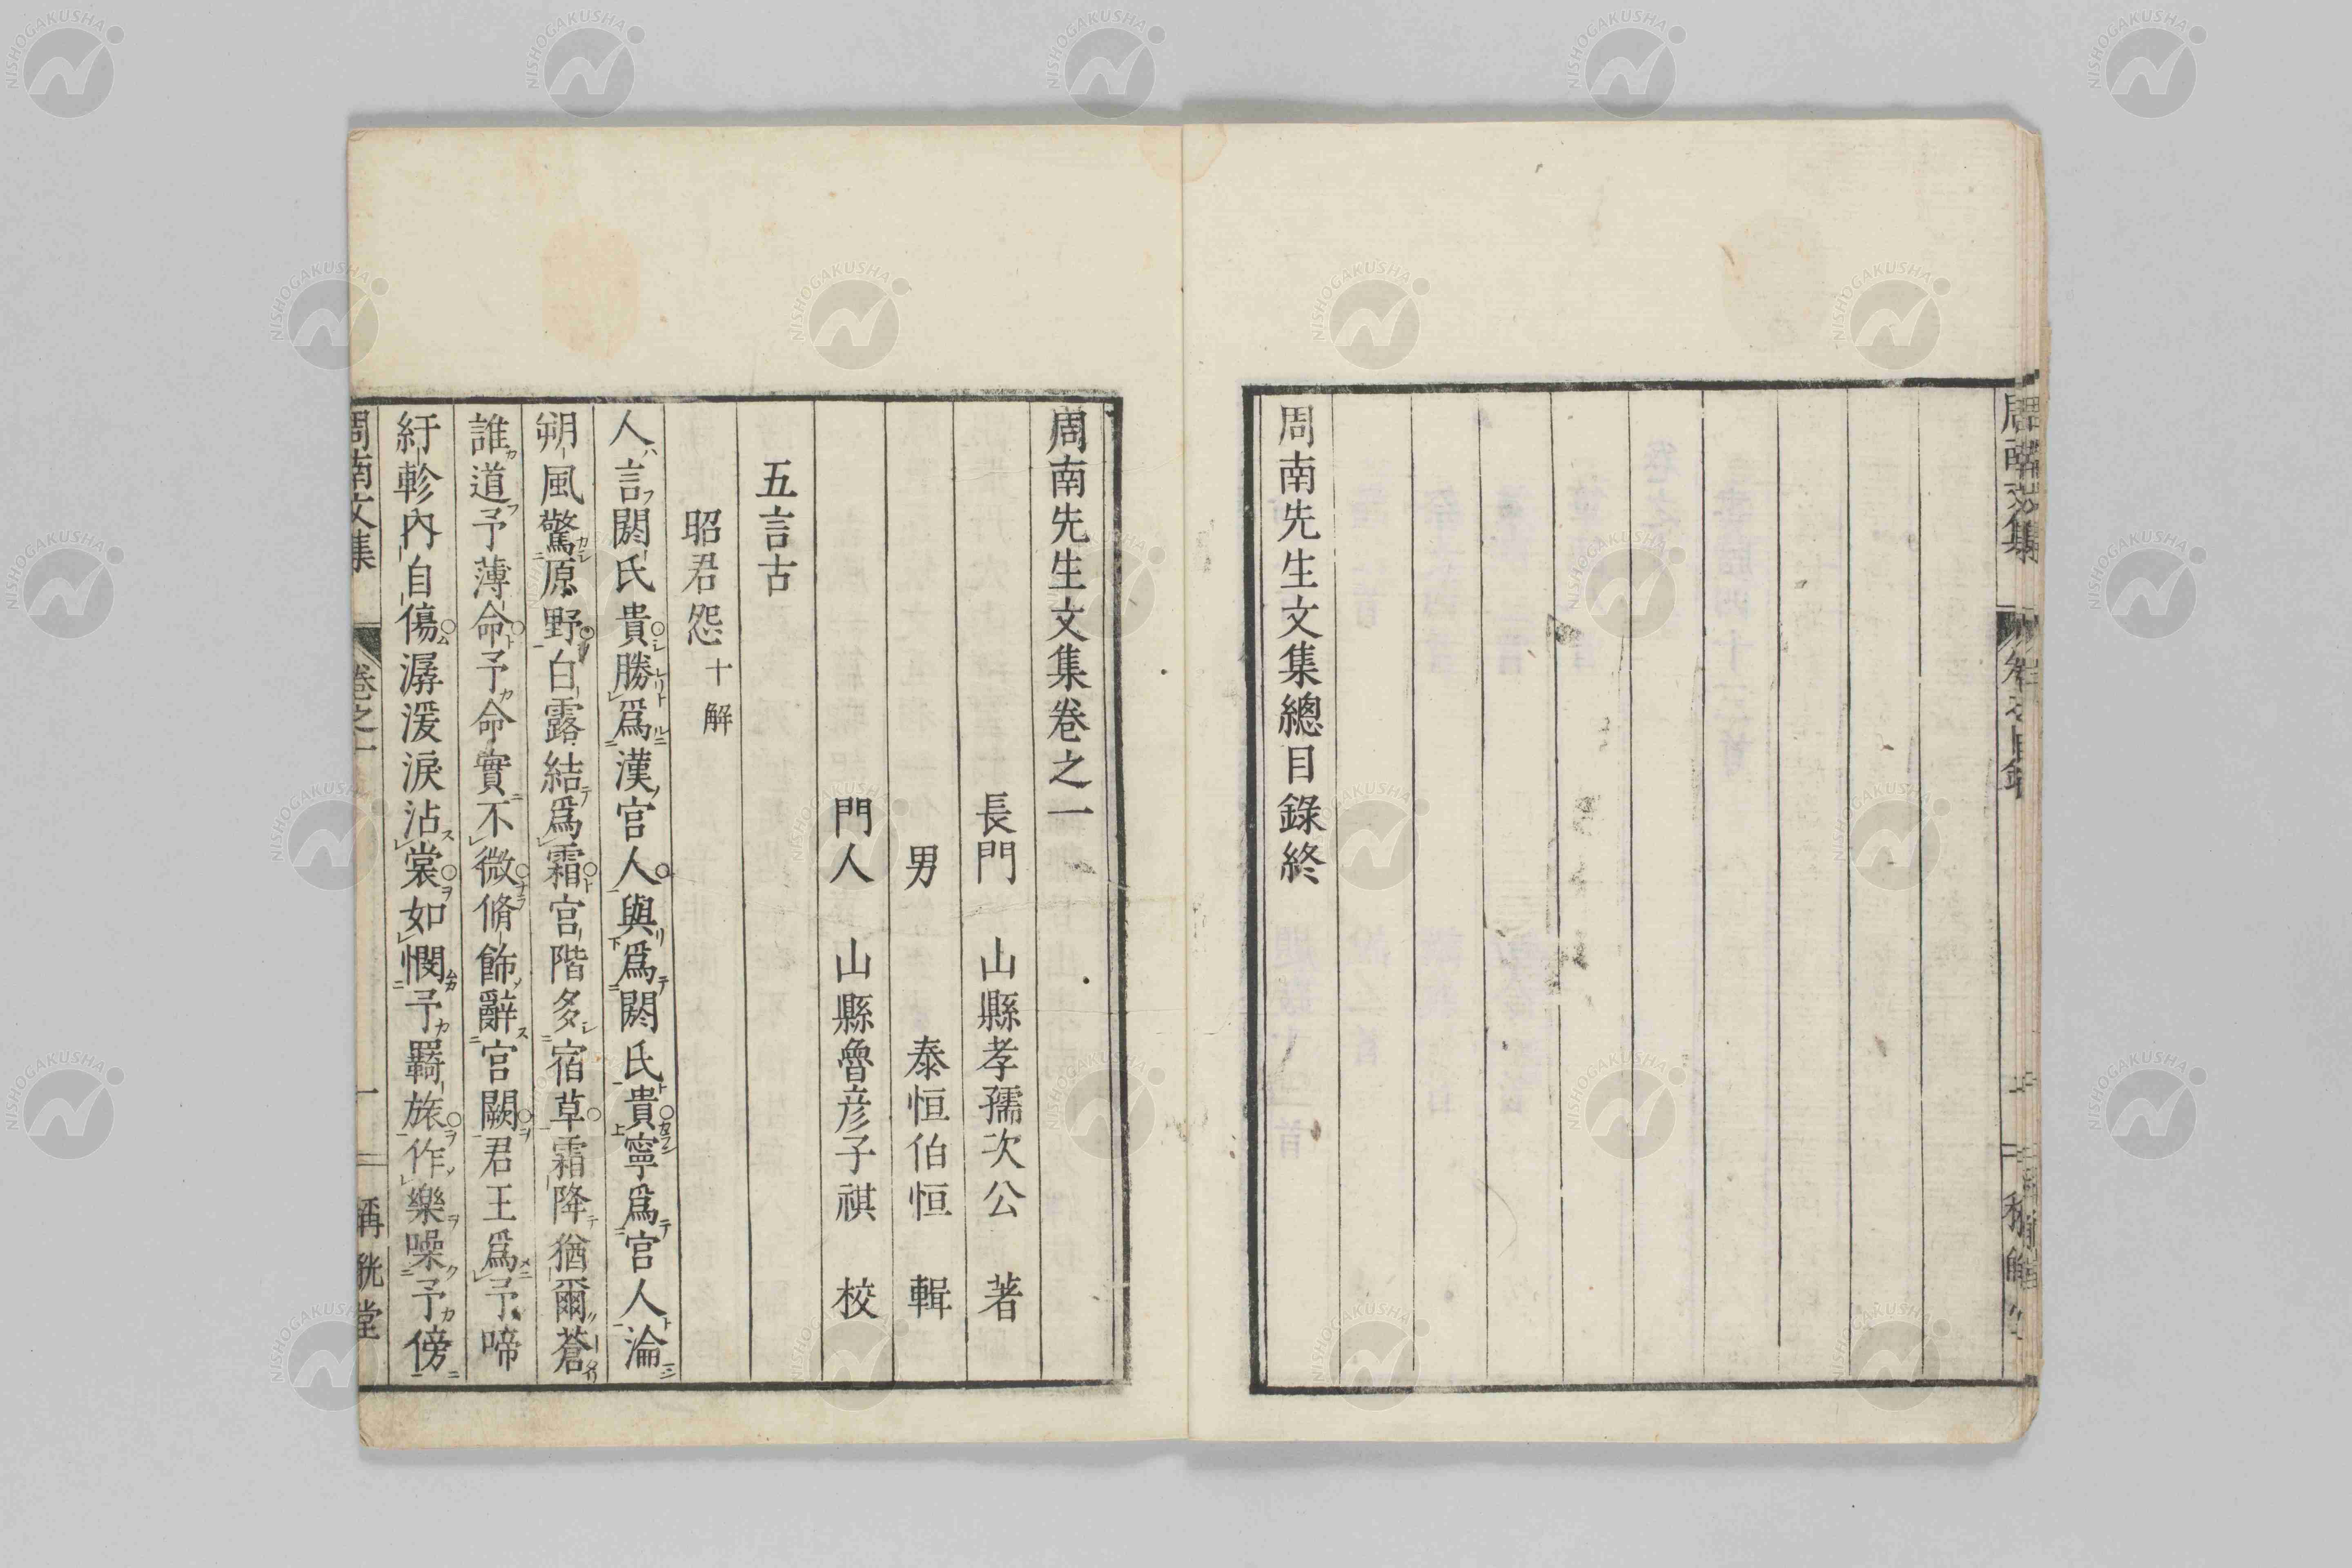 周南先生文集總目錄終
周南先生文集卷之一
長門　山縣孝孺次公　著
男　　泰恒伯恒　輯
門人　山縣魯彦子祺　校
五言古
昭君怨 十解
人言閼氏貴勝爲漢宮人與爲閼氏貴寧爲宮人淪
朔風驚原野白露結爲霜宮階多宿草霜降猶爾蒼
誰道予薄命予命實不微脩飾辭宮闕君王爲予啼
紆軫內自傷潺湲淚沾裳如憫予羇旅作樂噪予傍
周南文集　卷之一　一　稱觥堂